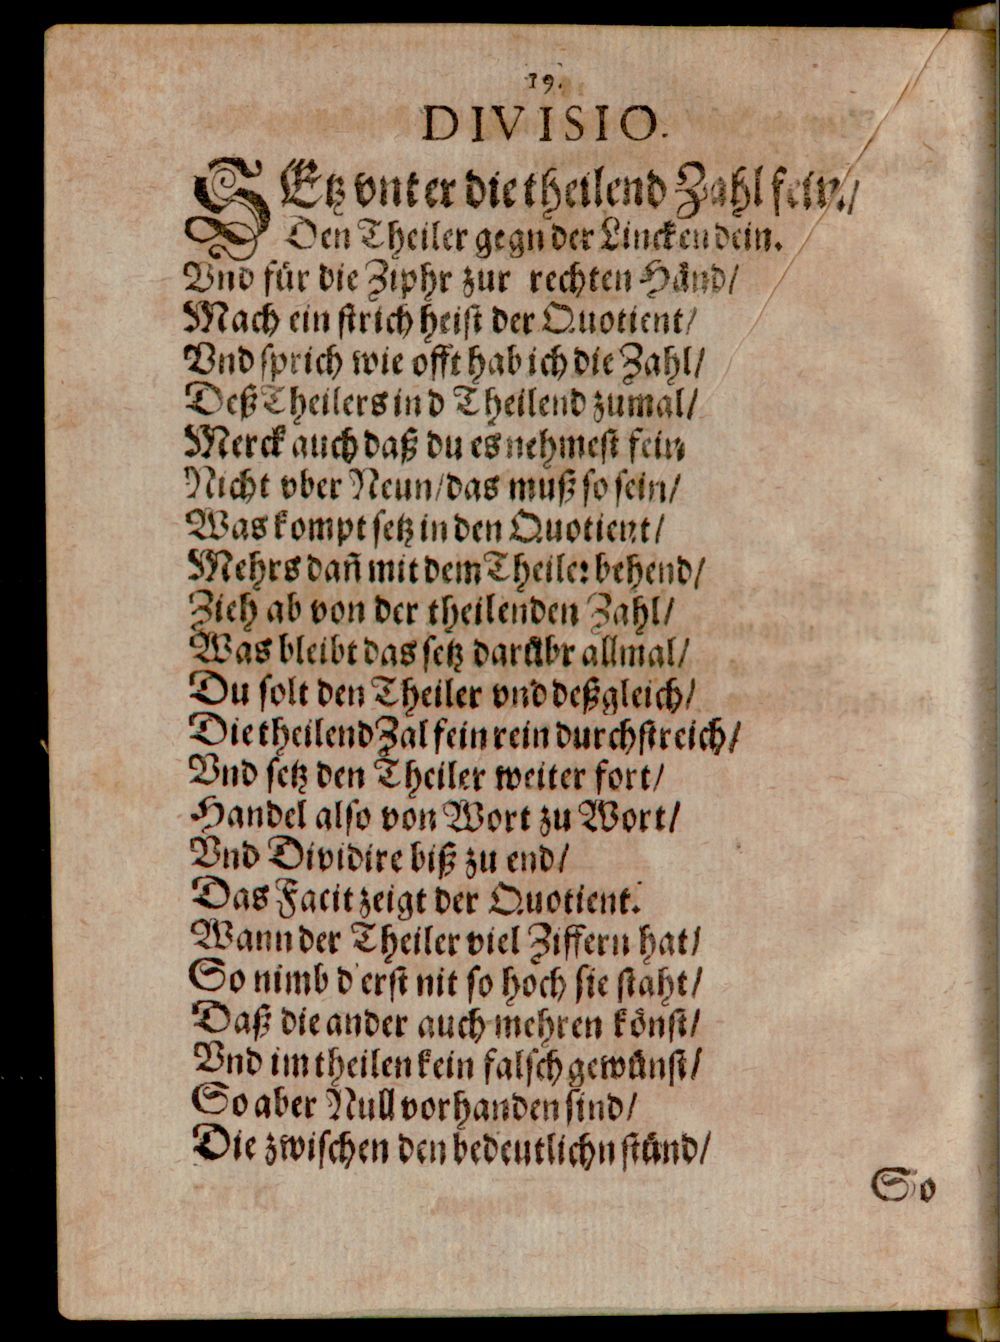 19.
DIVISIO.
SEtz vnter die theilend Zahl fein/
Den Theiler gegn der Lincken dein.
Vnd für die Ziphr zur rechten Hånd/
Mach ein strich heist der Quotient/
Vnd sprich wie offt hab ich die Zahl/
Deß Theilers in d Theilend zumal/
Merck auch daß du es nehmest fein
Nicht vber Neun/das muß so sein/
Was kompt setz in den Quotient/
Mehrs dañ mit dem Theiler behend/
Zieh ab von der theilenden Zahl/
Was bleibt das setz darůbr allmal/
Du solt den Theiler vnd deßgleich/
Die theilend Zal fein rein durchstreich/
Vnd setz den Theiler weiter fort/
Handel also von Wort zu Wort/
Vnd Dividire biß zu end/
Das Facit zeigt der Quotient.
Wann der Theiler viel Ziffern hat/
So nimb d'erst nit so hoch sie staht/
Daß die ander auch mehren könst/
Vnd im theilen kein falsch gewünst/
So aber Null vorhanden sind/
Die zwischen den bedeutlichn stünd/
So